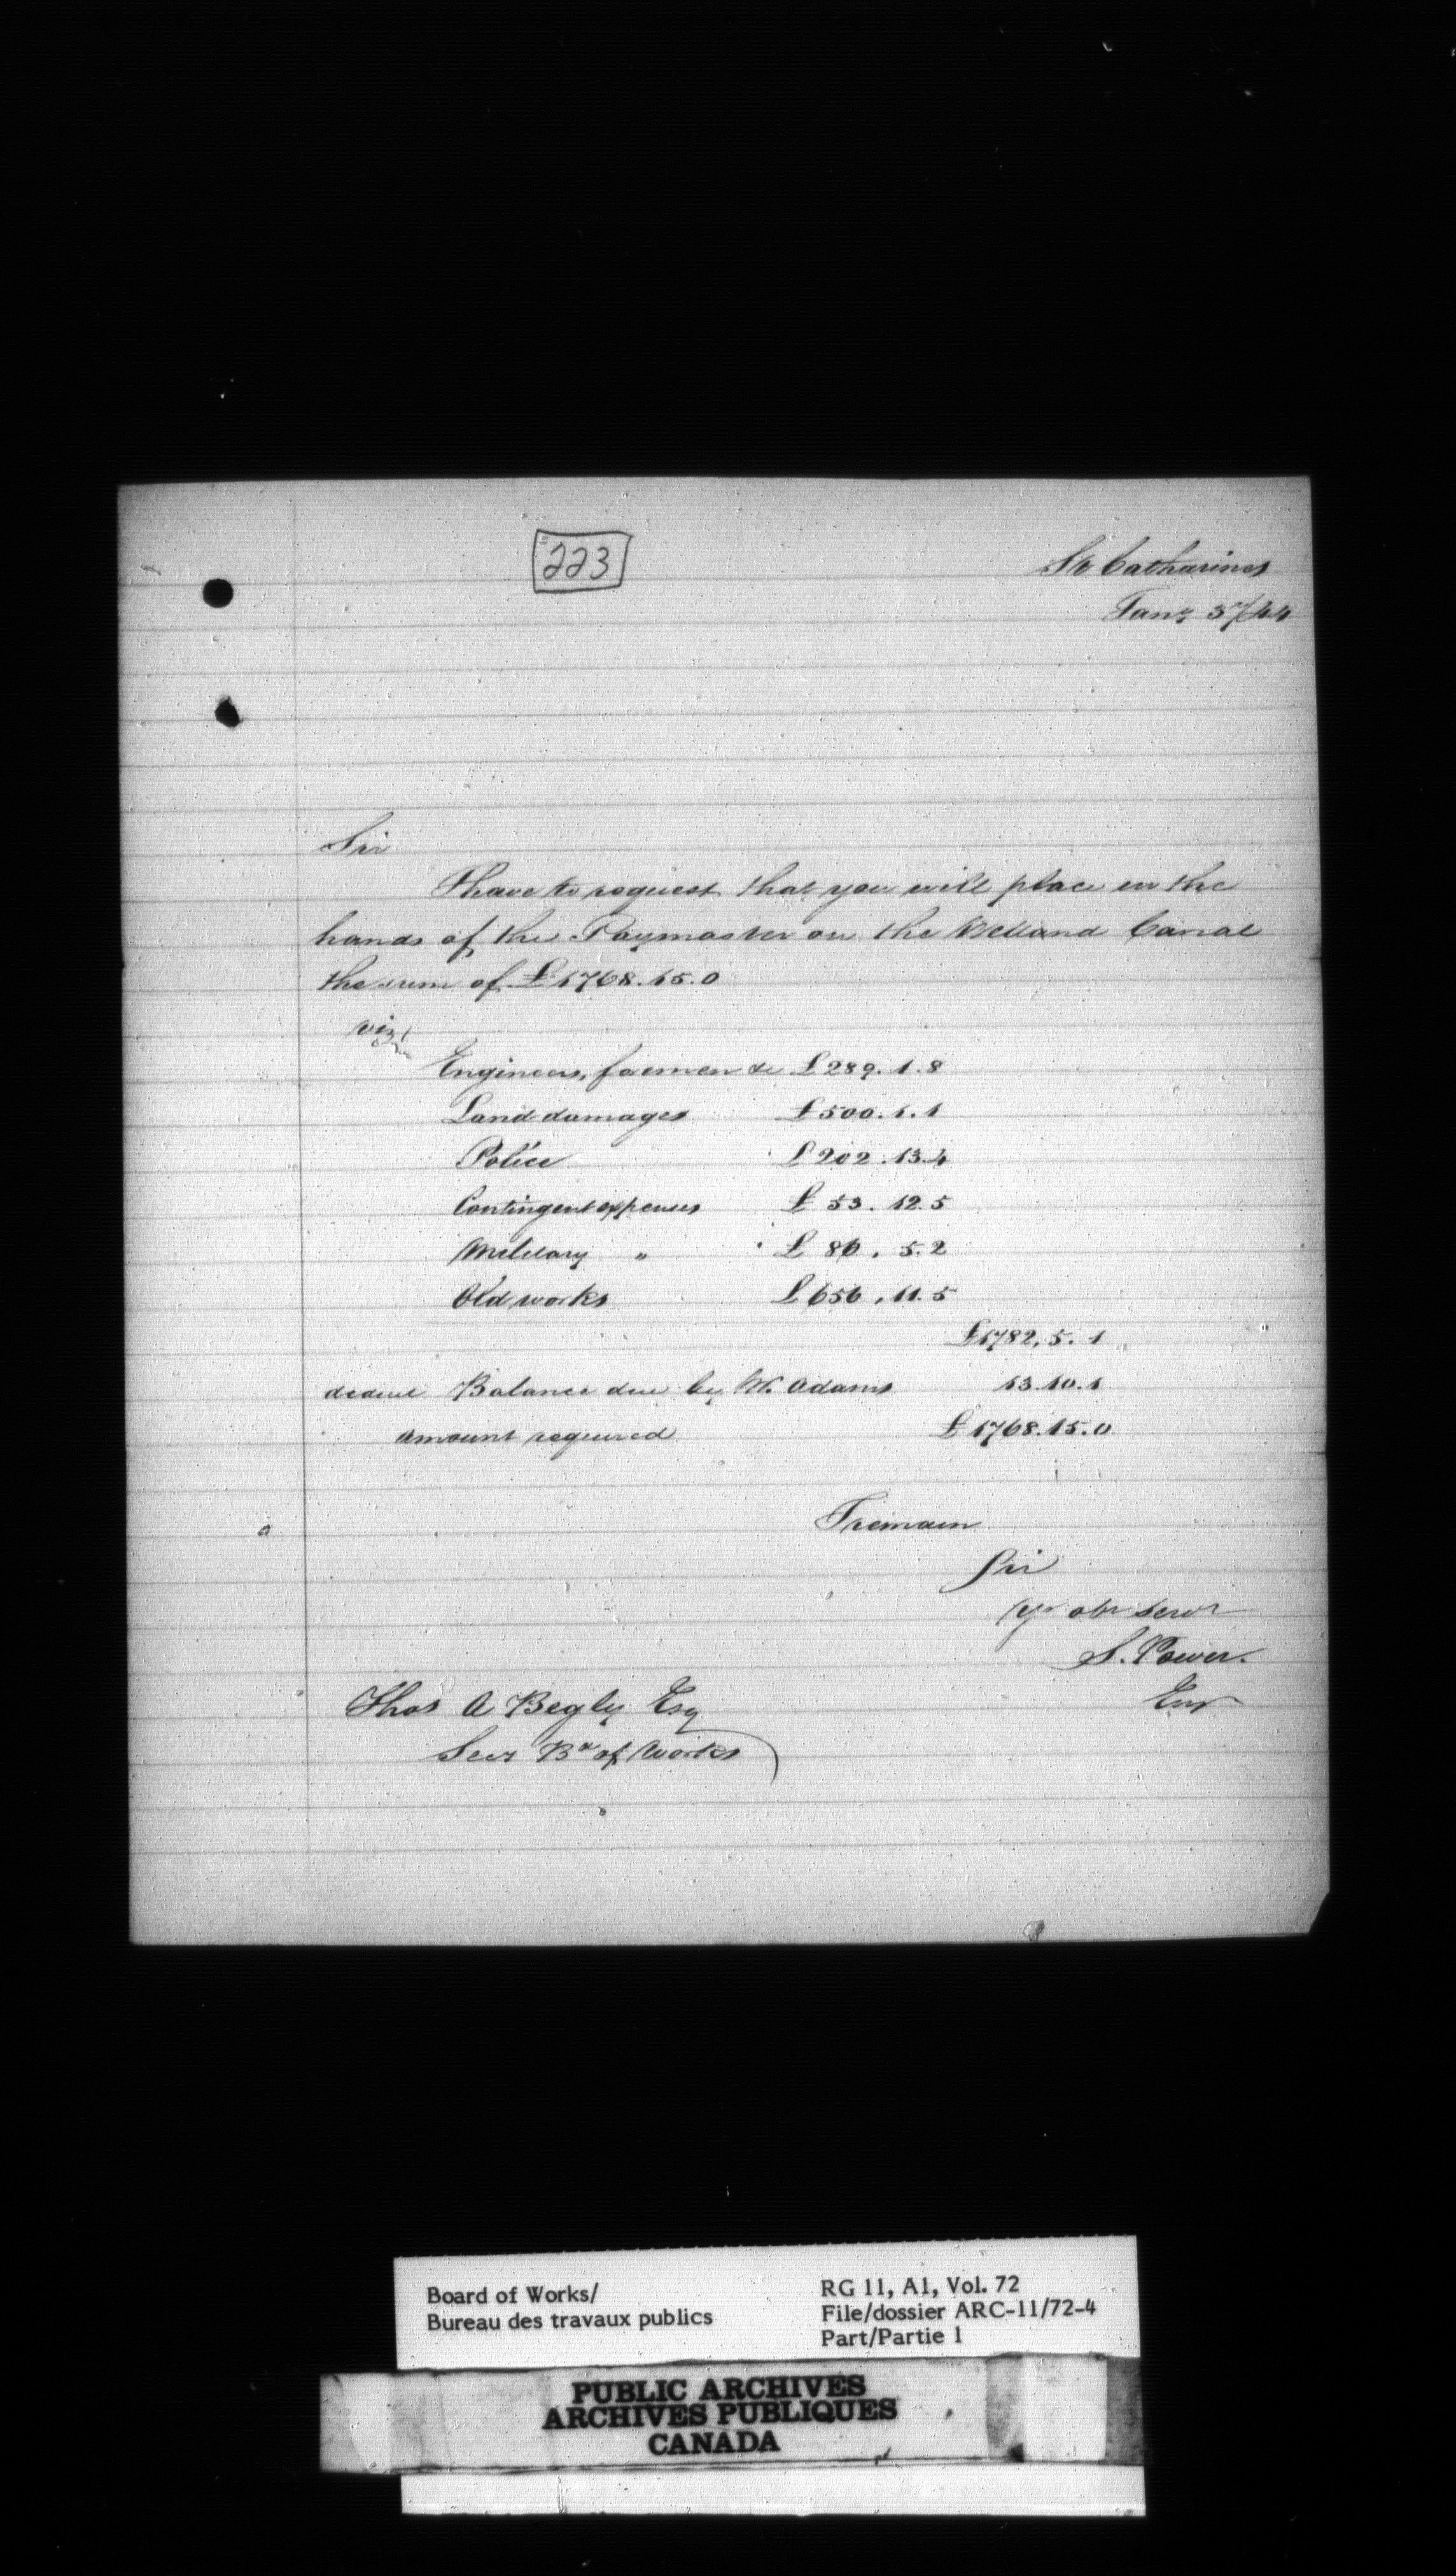 223
St Catharines
Jany 3rd/44
Sir
I have to request that you will place in the
hands of the Paymaster on the Welland Canal
the sum of £1768.15.0
viz
Engineers, foremen &c £289.1.8
Land damages £500.1.1
Police £202.13.4
Contingent expenses £53.12.5
Military " £80.5.2
Old works £656.11.5
£1782.5.1
deduct Balance due by W. Adams 13.10.1
amount required £1768.15.0
I remain
Sir
Yr obt servt
S. Power.
Engr
Thos A Begly Esq
Secy Bd of Works
Board of Works/
Bureau des travaux publics
RG 11, A1, Vol. 72
File/dossier ARC-11/72-4
Part/Partie 1
PUBLIC ARCHIVES
ARCHIVES PUBLIQUES
CANADA